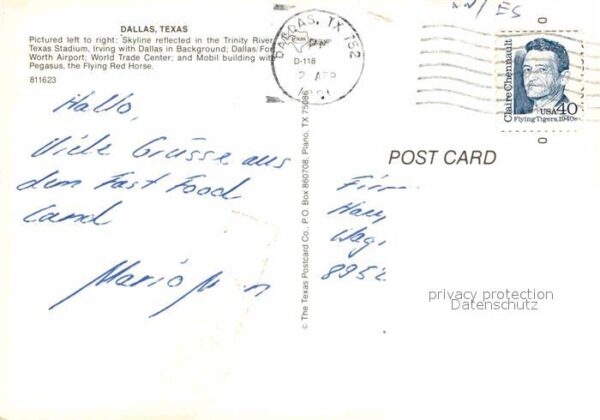 DALLAS, TEXAS
Pictured left to right: Skyline reflected in the Trinity River
Texas Stadium, Irving with Dallas in Background; Dallas/For
Worth Airport; World Trade Center; and Mobil building with
Pegasus, the Flying Red Horse.
811623
DALLAS, TX 752
PM
D-118
2 APR
Claire Chennault
USA 40
Flying Tigers, 1940s
POST CARD
Hallo,
Viele Grüsse aus
dem Fast Food
Land
Mario
© The Texas Postcard Co., P.O. Box 860708, Plano, TX 75086
8952
privacy protection
Datenschutz